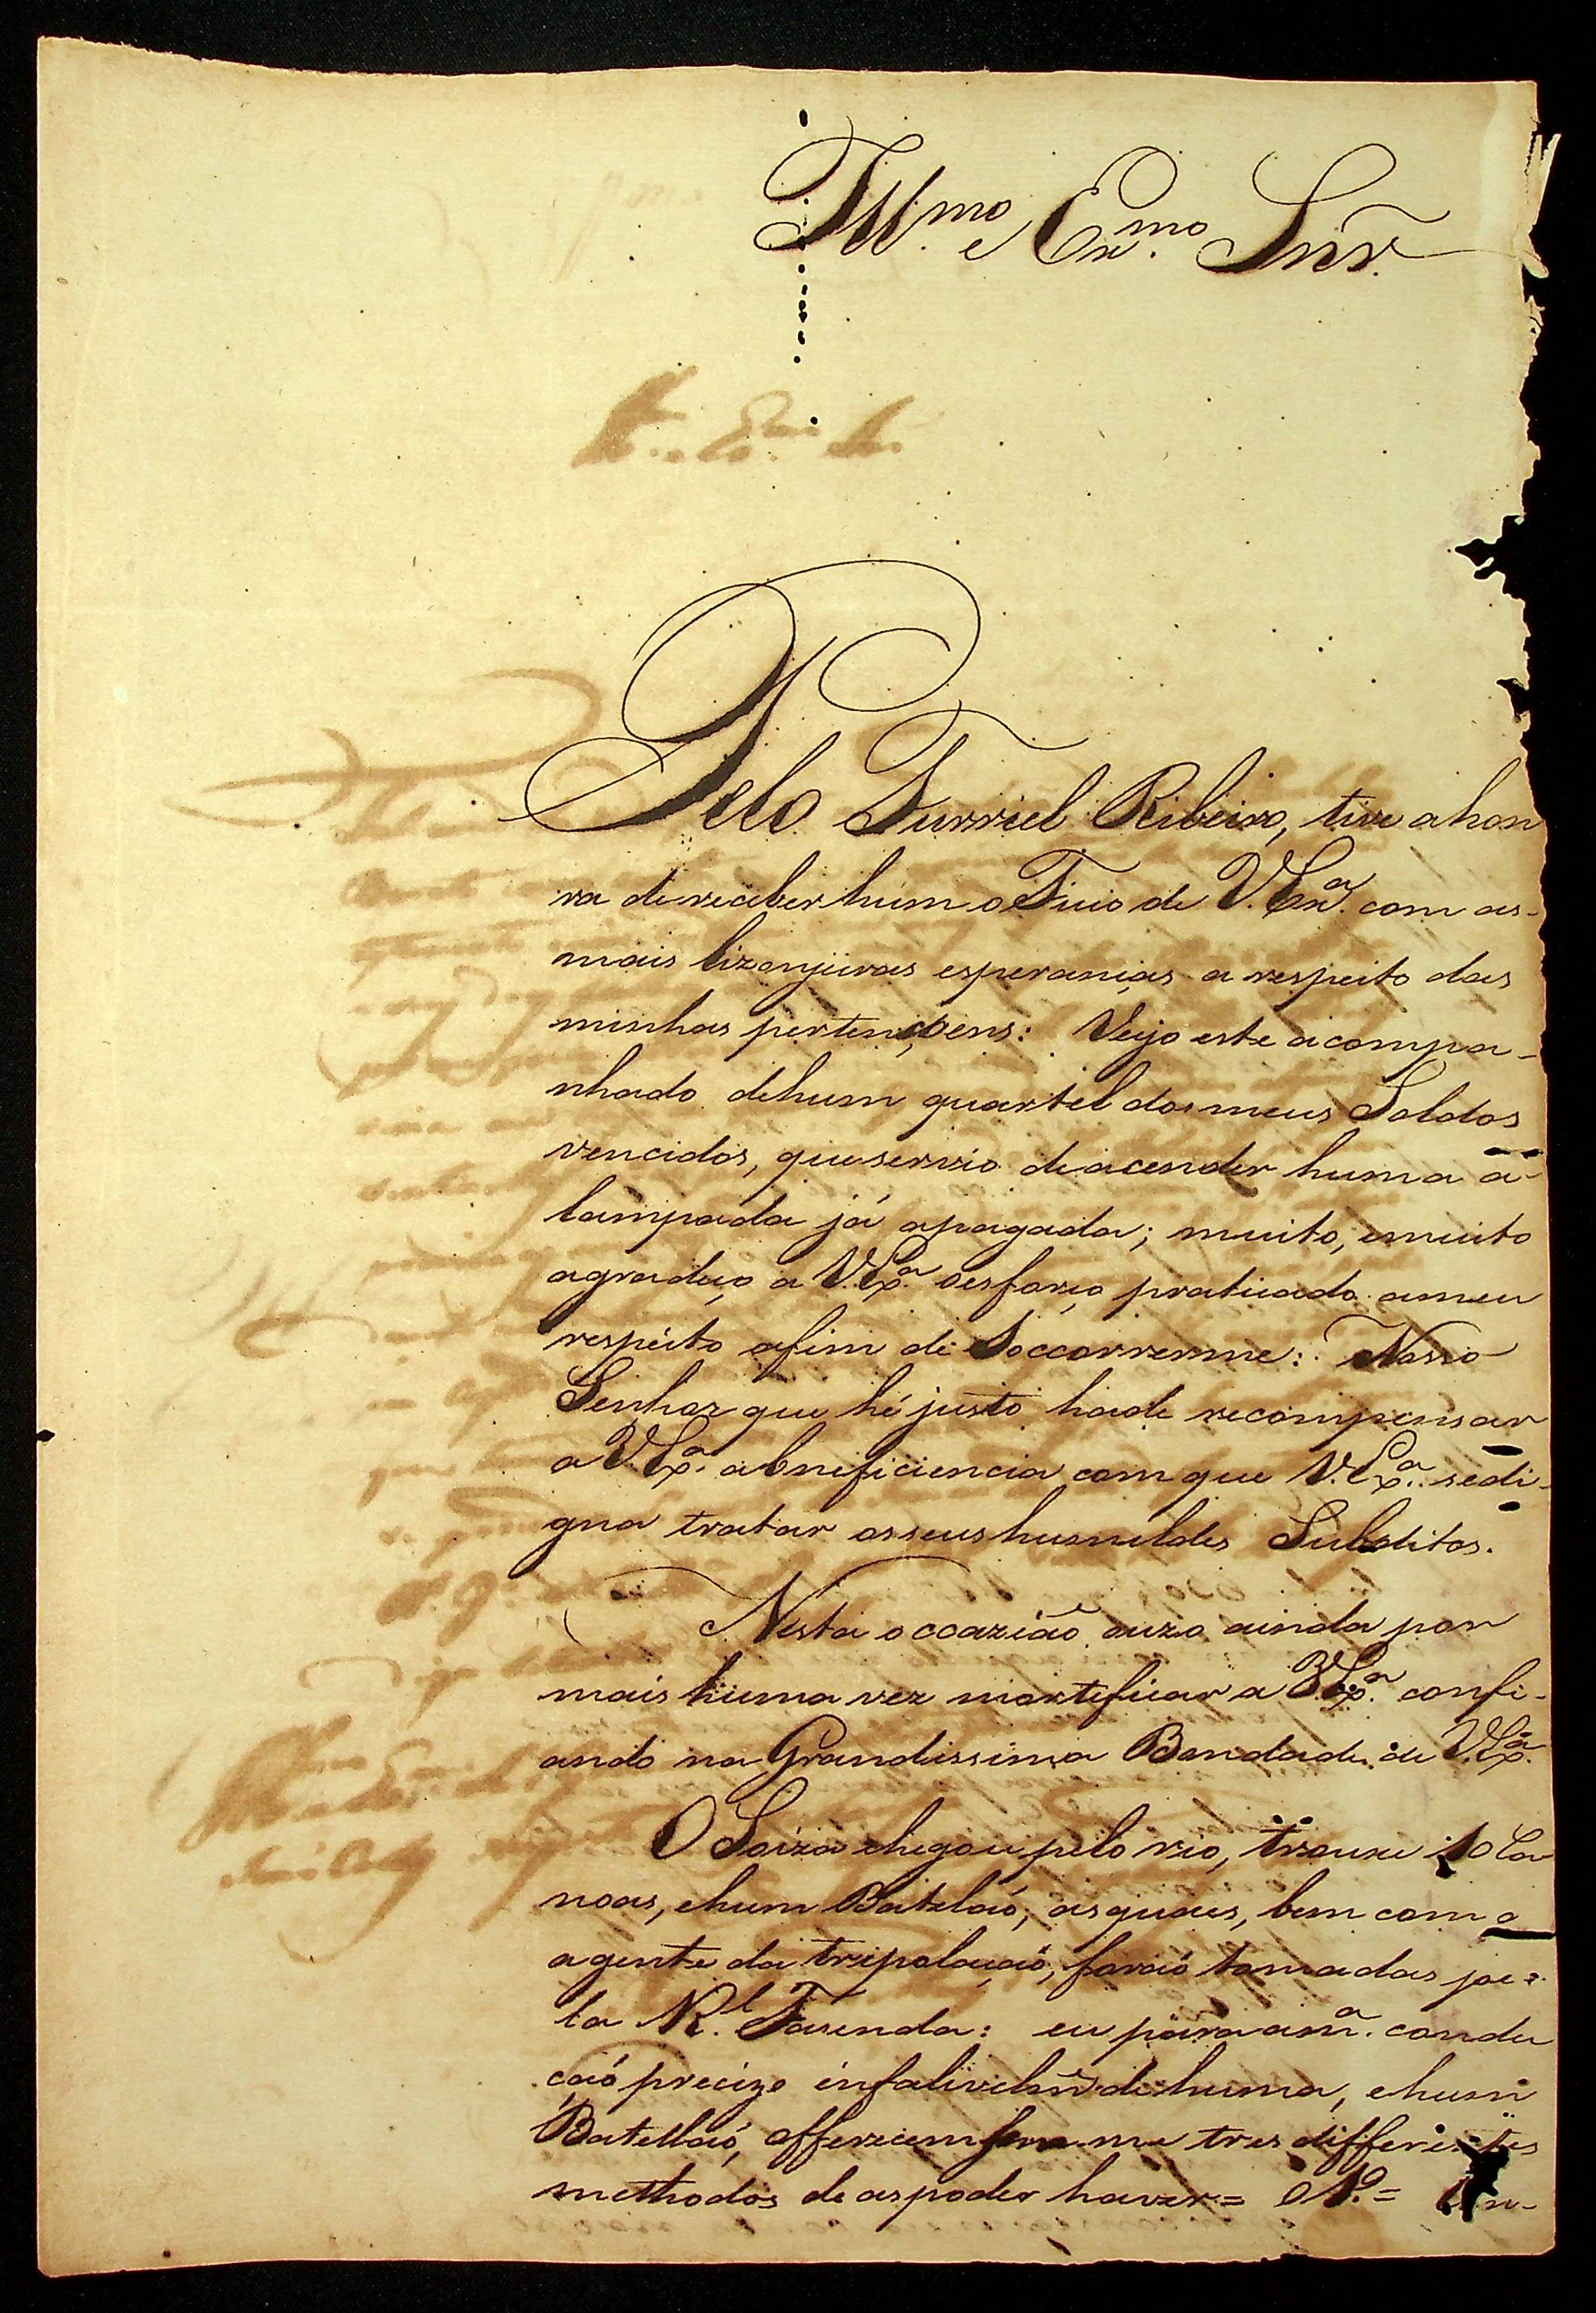 Ill.mo e Ex.mo Snr.
Pelo Furriel Ribeiro, tive a hon
ra de receber hum oFicio de V. Ex.a com as
mais lizonjeiras esperanças a respeito das
minhas pertençoens: Vejo este acompa-
nhado de hum quartel dos meus Soldos
vencidos, que servio de acender huma a-
lampada já apagada; muito, e muito
agradeço a V. Ex.a o esforço praticado a meu
respeito afim de Soccorrerme: Nosso
Senhor que hé justo hade recompensar
a V. Ex.a a beneficiencia com que V. Ex.a se di-
gna tratar os seus humildes Subditos.
Nesta occazião ouzo ainda por
mais huma vez mortificar a V. Ex.a confi-
ando na Grandissima Bondade de V. Ex.a
O Soiza chegou pelo rio, trouxe 10 Ca
noas, e hum Batelaó, as quaes, bem como
a gente da tripolaçaó, foraó tomadas pe-
la R.l Fasenda: eu para a m.a condu
çaó precizo infalivelm.e de huma, e hum
Batellaó, offerecem se me tres differentes
methodos de as poder haver= O 1.o =